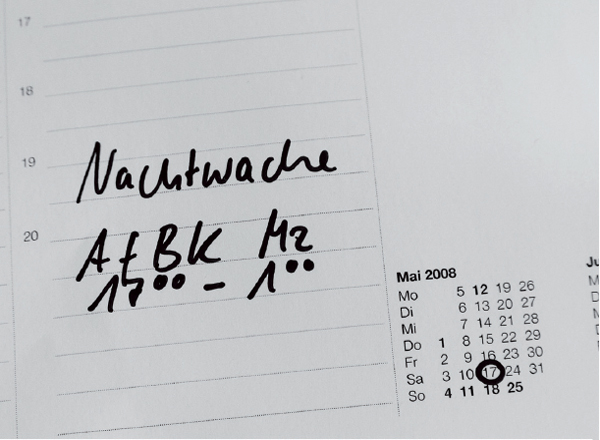 17
18
19
Nachtwache
20
AfBK Mz
17⁰⁰ - 1⁰⁰
Mai 2008
Mo 5 12 19 26
Di 6 13 20 27
Mi 7 14 21 28
Do 1 8 15 22 29
Fr 2 9 16 23 30
Sa 3 10 17 24 31
So 4 11 18 25
Ju
M
D
M
D